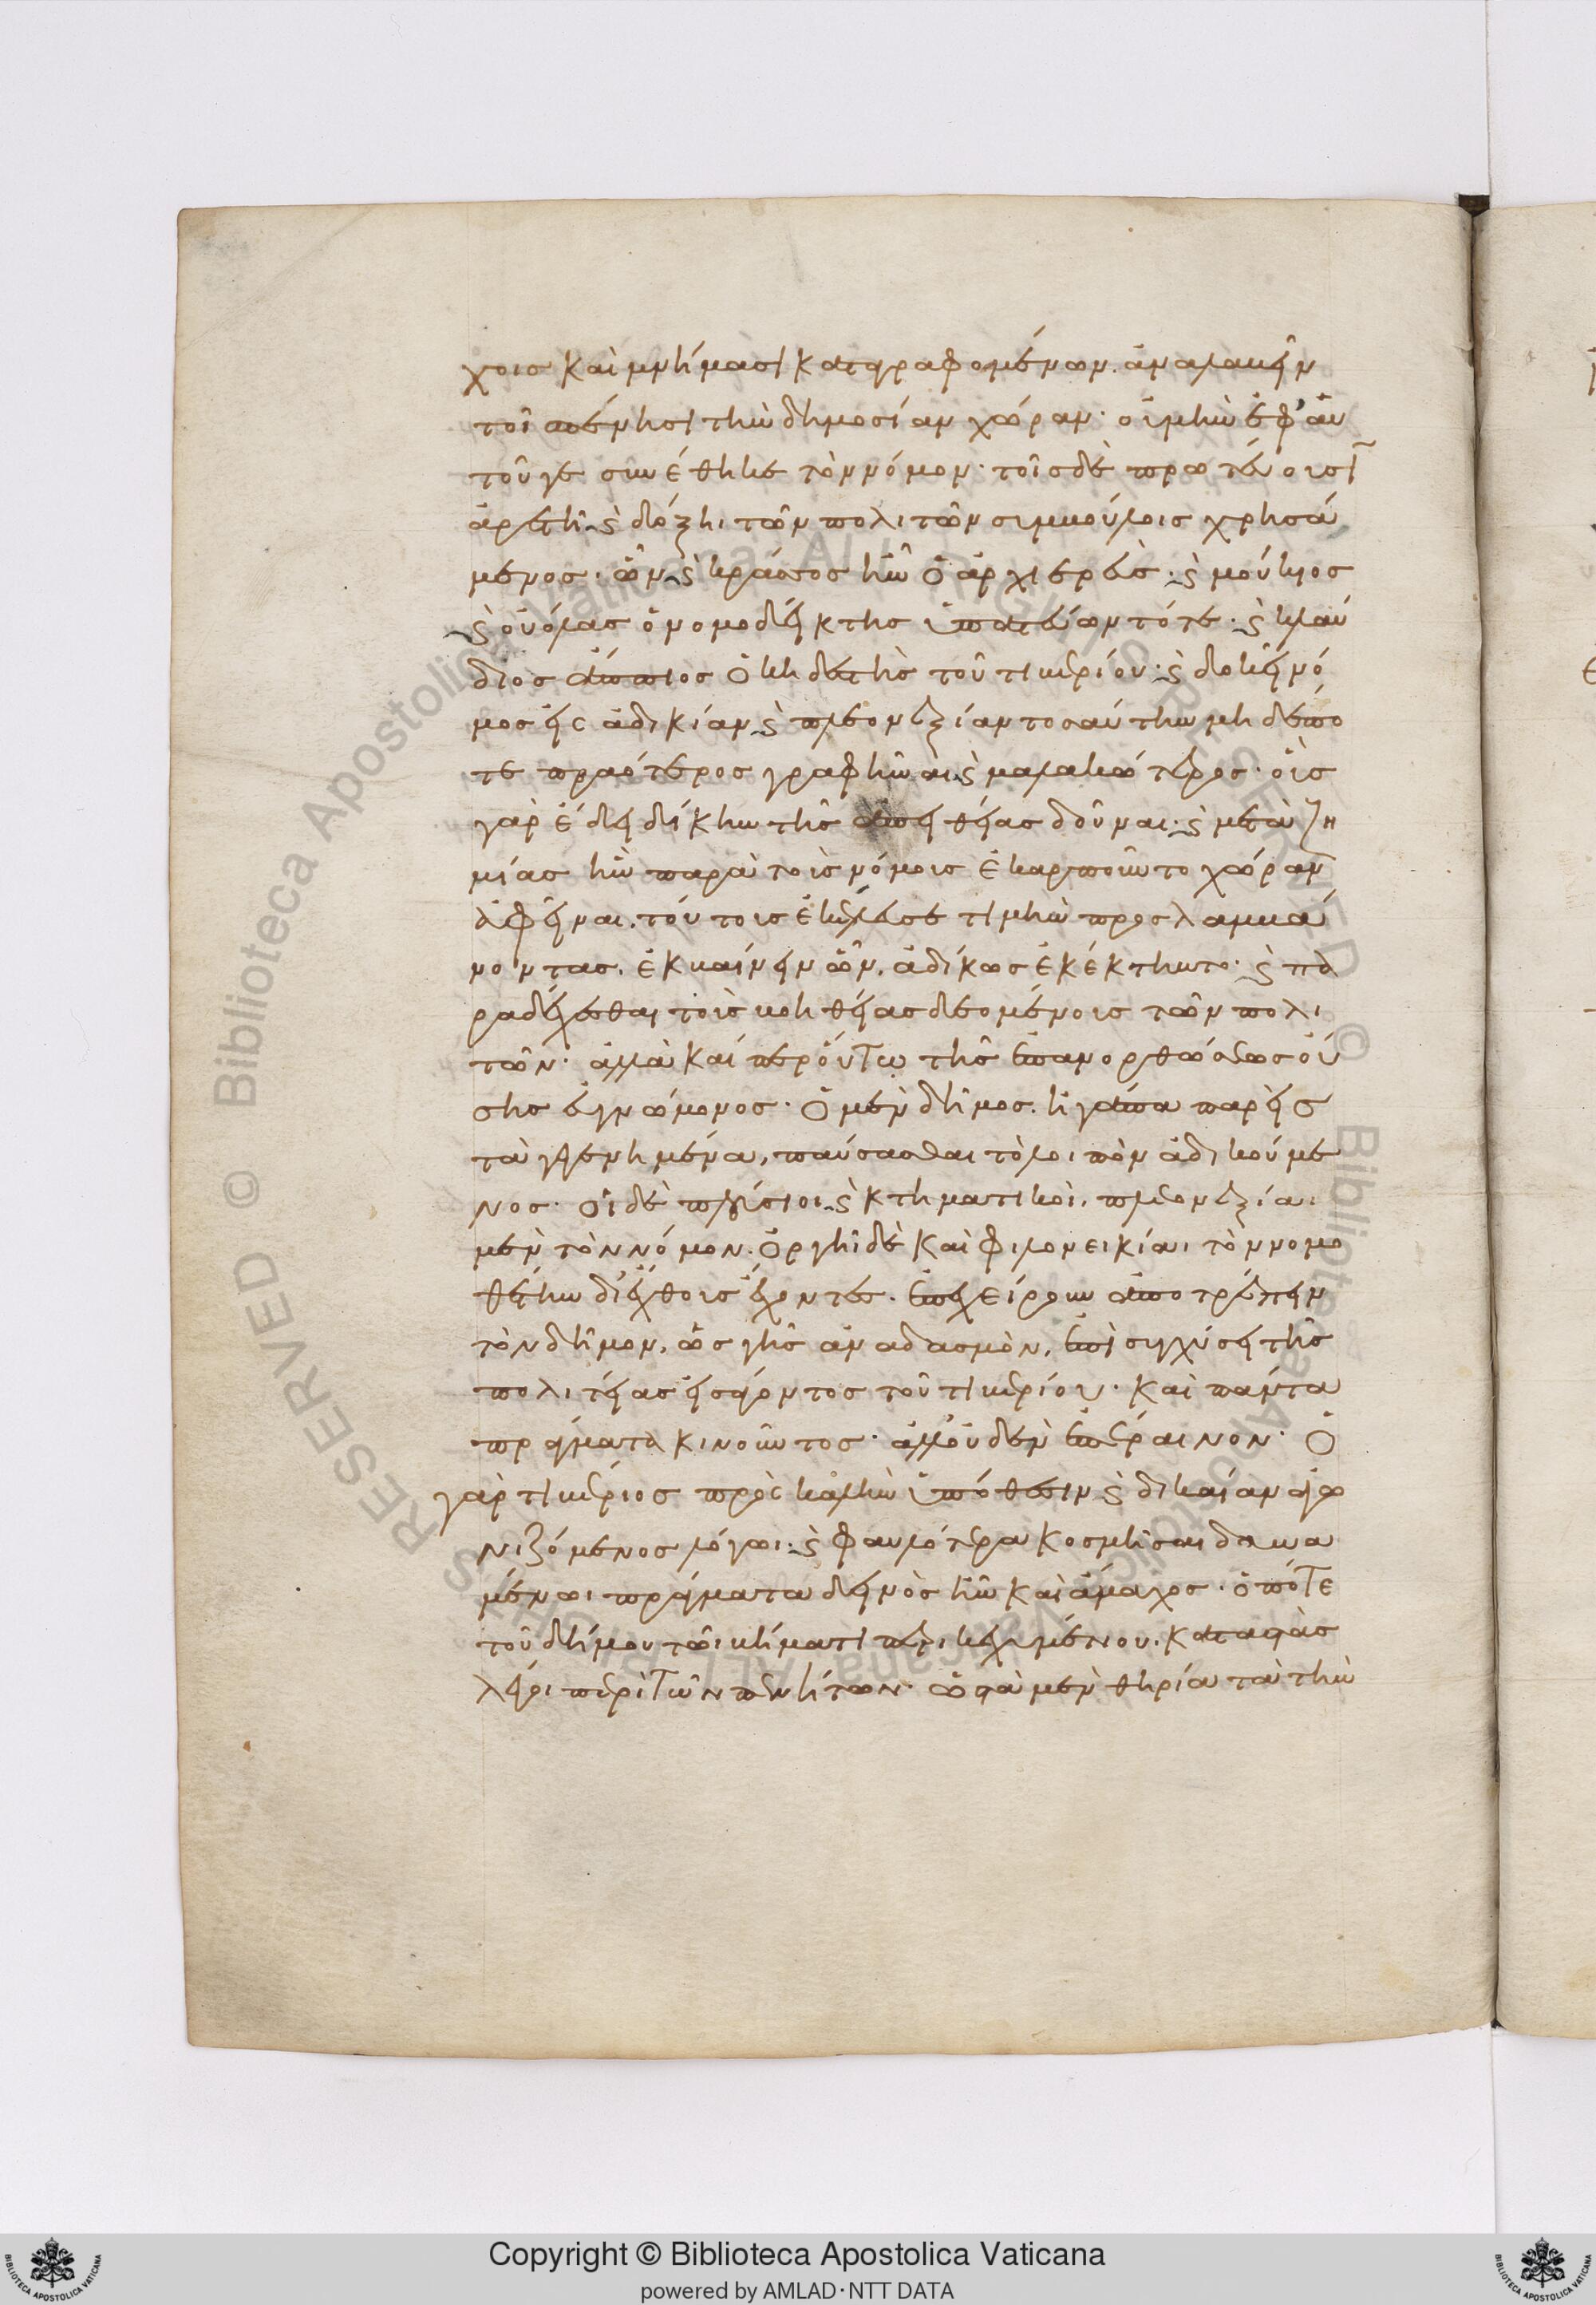 χοις καὶ μνήμασι καταγραφομένων. ἀναλαβεῖν
τοῖ πένησι τὴν δημοσίαν χώραν· οὐ μὴν ἐφ' αὑ
τοῦ γε συνέθηκε τὸν νόμον· τοῖς δὲ πρωτεύουσῖ
ἀρετῆι ϗ δόξηι τῶν πολιτῶν συμβούλοις χρησά
μενος· ὧν ϗ κράσσος ἦν ὁ ἀρχιερεὺς· ϗ μούκιος
ϗ ουόλας ὁ νομοδείκτης ὑπατεύων τότε· ϗ κλαύ
διος ἄππιος ὁ κηδεστὴς τοῦ τιβερίου· ϗ δοκεῖ νό
μος εἰς ἀδικίαν ϗ πλεονεξίαν τοσαύτην μηδέπο
τε πραότερος γραφῆναι ϗ μαλακώτερος· οὓς
γὰρ ἔδει δίκην τῆς ἀπειθείας δοῦναι· ϗ μετὰ ζη
μίας ἣν παρὰ τοῖς νόμοις ἐκαρποῦντο χώραν
ἀφεῖναι, τούτοις ἐκέλευσε τιμὴν προσλαμβά
νοντας. ἐκβαίνειν ὧν, ἀδίκως ἐκέκτηντο· ϗ πα
ραδέχεσθαι τοὺς βοηθείας δεομένους τῶν πολι
τῶν· ἀλλὰ καίπερ οὕτω τῆς ἐπανορθώσεως οὔ
σης εὐγνώμονος· ὁ μὲν δῆμος. ἠγάπα παρεὶς
τὰ γεγενημένα, παύσασθαι τὸ λοιπὸν ἀδικούμε
νος· οἱ δὲ πλούσιοι ϗ κτηματικοὶ, πλεονεξίαι
μὲν τὸν νόμον. ὀργῆι δὲ καὶ φιλονεικίαι τὸν νομο
θέτην δι' ἔχθους ἔχοντες. ἐπεχείρουν ἀποτρέπειν
τὸν δῆμον, ὡς γῆς ἀναδασμὸν, ἐπὶ συγχύσει τῆς
πολιτείας εἰσάγοντος τοῦ τιβερίου· καὶ πάντα
πράγματα κινοῦντος· ἀλλ' οὐδὲν ἐπέραινον· ὁ
γὰρ τιβέριος πρὸς καλὴν ὑπόθεσιν ϗ δικαίαν ἀγω
νιζόμενος λόγωι· ϗ φαυλότερα κοσμῆσαι δυνα
μένωι πράγματα δεινὸς ἦν καὶ ἄμαχος· ὁπότε
τοῦ δήμου τῶι βήματι περικεχυμένου. καταστὰς
λέγοι περὶ τῶν πενήτων· ὡς τὰ μὲν θηρία τὰ τὴν